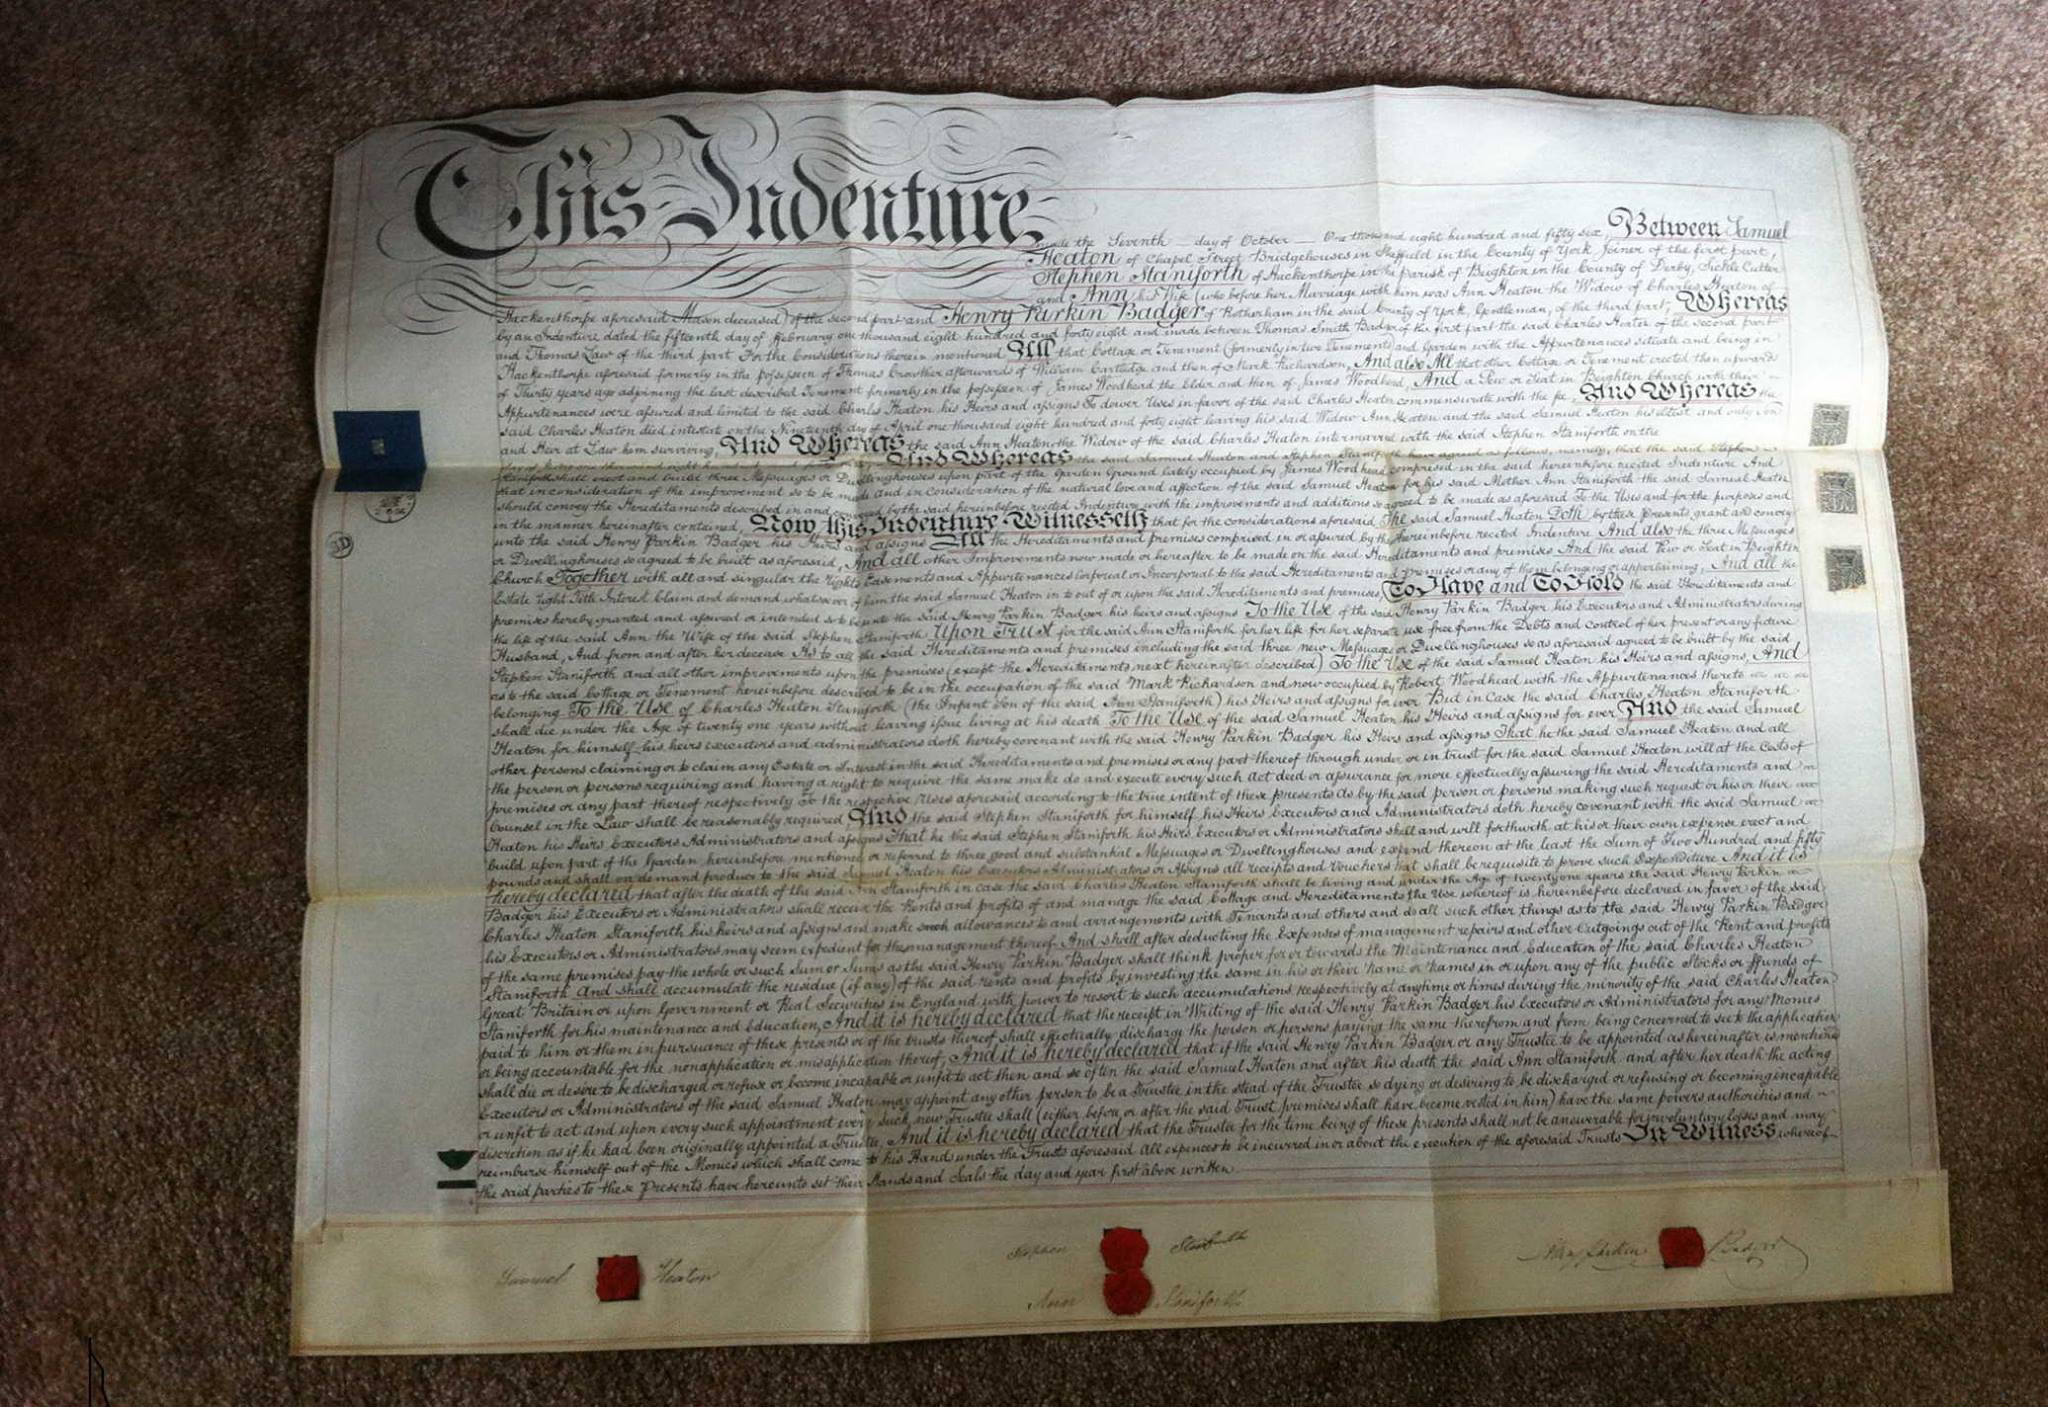 This Indenture
made the Seventh day of October One thousand eight hundred and fifty six, Between Samuel
Heaton of Chapel Street Bridgehouses in Sheffield in the County of York Joiner of the first part,
Stephen Staniforth of Hackenthorpe in the parish of Beighton in the County of Derby, Sickle Cutter
and Ann his Wife (who before her Marriage with him was Ann Heaton the Widow of Charles Heaton of
Hackenthorpe aforesaid Mason deceased) of the second part and Henry Parkin Badger of Rotherham in the said County of York, Gentleman, of the third part, Whereas
by an Indenture dated the fifteenth day of February one thousand eight hundred and forty eight and made between Thomas Smith Badger of the first part the said Charles Heaton of the second part
and Thomas Law of the third part For the Considerations therein mentioned All that Cottage or Tenement (formerly in two Tenements) and Garden with the Appurtenances situate and being in
Hackenthorpe aforesaid formerly in the possession of Thomas Crowther afterwards of William Cartledge and then of Mark Richardson, And also All that other Cottage or Tenement erected then upwards
of Thirty years ago adjoining the last described Tenement formerly in the possession of James Woodhead the Elder and then of James Woodhead, And a Pew or Seat in Beighton Church with their
Appurtenances were assured and limited to the said Charles Heaton his Heirs and assigns To dower Uses in favor of the said Charles Heaton commensurate with the fee, And Whereas the
said Charles Heaton died intestate on the Nineteenth day of April one thousand eight hundred and forty eight leaving his said Widow Ann Heaton and the said Samuel Heaton his eldest and only son
and Heir at Law him surviving, And Whereas the said Ann Heaton the Widow of the said Charles Heaton intermarried with the said Stephen Staniforth on the
And Whereas the said Samuel Heaton and Stephen Staniforth have agreed as follows, namely, that the said Stephen
Staniforth shall erect and build three Messuages or Dwellinghouses upon part of the Garden Ground lately occupied by James Woodhead comprised in the said hereinbefore recited Indenture And
that in consideration of the improvement so to be made and in consideration of the natural love and affection of the said Samuel Heaton for his said Mother Ann Staniforth the said Samuel Heaton
should convey the Hereditaments described in and conveyed by the said hereinbefore recited Indenture with the improvements and additions so agreed to be made as aforesaid To the Uses and for the purposes and
in the manner hereinafter contained, Now this Indenture Witnesseth that for the considerations aforesaid He the said Samuel Heaton Doth by these presents grant and convey
unto the said Henry Parkin Badger his Heirs and assigns All the Hereditaments and premises comprised in or assured by the hereinbefore recited Indenture And also the three Messuages
or Dwellinghouses so agreed to be built as aforesaid, And all other Improvements now made or hereafter to be made on the said Hereditaments and premises And the said Pew or Seat in Beighton
Church Together with all and singular the Rights Easements and Appurtenances Corporeal or Incorporeal to the said Hereditaments and premises or any of them belonging or appertaining, And all the
Estate right Title Interest Claim and demand whatsoever of him the said Samuel Heaton in to out of or upon the said Hereditaments and premises, To Have and To Hold the said Hereditaments and
premises hereby granted and assured or intended so to be unto the said Henry Parkin Badger his heirs and assigns To the Use of the said Henry Parkin Badger his Executors and Administrators during
the life of the said Ann the Wife of the said Stephen Staniforth Upon Trust for the said Ann Staniforth for her life for her separate use free from the Debts and control of her present or any future
Husband, And from and after her decease As to all the said Hereditaments and premises including the said three new Messuages or Dwellinghouses so as aforesaid agreed to be built by the said
Stephen Staniforth and all other improvements upon the premises (except the Hereditaments next hereinafter described) To the Use of the said Samuel Heaton his Heirs and assigns, And
as to the said Cottage or Tenement hereinbefore described to be in the occupation of the said Mark Richardson and now occupied by Robert Woodhead with the Appurtenances thereto
belonging To the Use of Charles Heaton Staniforth (the Infant Son of the said Ann Staniforth) his Heirs and assigns for ever But in Case the said Charles Heaton Staniforth
shall die under the Age of twenty one years without leaving issue living at his death To the Use of the said Samuel Heaton his Heirs and assigns for ever And the said Samuel
Heaton for himself his heirs executors and administrators doth hereby covenant with the said Henry Parkin Badger his Heirs and assigns That he the said Samuel Heaton and all
other persons claiming or to claim any Estate or Interest in the said Hereditaments and premises or any part thereof through under or in trust for the said Samuel Heaton will at the Costs of
the person or persons requiring and having a right to require the same make do and execute every such Act deed or assurance for more effectually assuring the said Hereditaments and
premises or any part thereof respectively To the respective Uses aforesaid according to the true intent of these presents As by the said person or persons making such request or his or their
Counsel in the Law shall be reasonably required, And the said Stephen Staniforth for himself his Heirs Executors and Administrators doth hereby covenant with the said Samuel
Heaton his Heirs Executors Administrators and assigns That he the said Stephen Staniforth his Heirs Executors or Administrators shall and will forthwith at his or their own expense erect and
build upon part of the Garden hereinbefore mentioned or referred to three good and substantial Messuages or Dwellinghouses and expend thereon at the least the Sum of Two Hundred and fifty
pounds and shall on demand produce to the said Samuel Heaton his Executors Administrators or Assigns all receipts and Vouchers that shall be requisite to prove such Expenditure And it is
hereby declared that after the death of the said Ann Staniforth in case the said Charles Heaton Staniforth shall be living and under the Age of twenty one years the said Henry Parkin
Badger his Executors or Administrators shall receive the Rents and profits of and manage the said Cottage and Hereditaments the Use whereof is hereinbefore declared in favor of the said
Charles Heaton Staniforth his heirs and assigns and make such allowances to and arrangements with Tenants and others and do all such other things as to the said Henry Parkin Badger
his Executors or Administrators may seem expedient for the management thereof And shall after deducting the Expenses of management repairs and other Outgoings out of the Rent and profits
of the same premises pay the whole or such Sum or Sums as the said Henry Parkin Badger shall think proper for or towards the Maintenance and Education of the said Charles Heaton
Staniforth And shall accumulate the residue (if any) of the said rents and profits by investing the same in his or their Name or Names in or upon any of the public Stocks or ffunds of
Great Britain or upon Government or Real Securities in England with power to resort to such accumulations respectively at any time or times during the minority of the said Charles Heaton
Staniforth for his maintenance and Education, And it is hereby declared that the receipt in Writing of the said Henry Parkin Badger his Executors or Administrators for any Monies
paid to him or them in pursuance of these presents or of the trusts thereof shall effectually discharge the person or persons paying the same therefrom and from being concerned to see to the application
or being accountable for the nonapplication or misapplication thereof, And it is hereby declared that if the said Henry Parkin Badger or any Trustee to be appointed as hereinafter is mentioned
shall die or desire to be discharged or refuse or become incapable or unfit to act then and so often the said Samuel Heaton and after his death the said Ann Staniforth and after her death the acting
Executors or Administrators of the said Samuel Heaton may appoint any other person to be a Trustee in the stead of the Trustee so dying or desiring to be discharged or refusing or becoming incapable
or unfit to act and upon every such appointment every such new Trustee shall (either before or after the said Trust premises shall have become vested in him) have the same powers authorities and
discretion as if he had been originally appointed a Trustee, And it is hereby declared that the Trustee for the time being of these presents shall not be answerable for involuntary losses and may
reimburse himself out of the Monies which shall come to his Hands under the Trusts aforesaid All expenses to be incurred in or about the execution of the aforesaid Trusts In Witness whereof
the said parties to these Presents have hereunto set their Hands and Seals the day and year first above written
Samuel Heaton
Stephen Staniforth
Ann Staniforth
Henry Parkin Badger